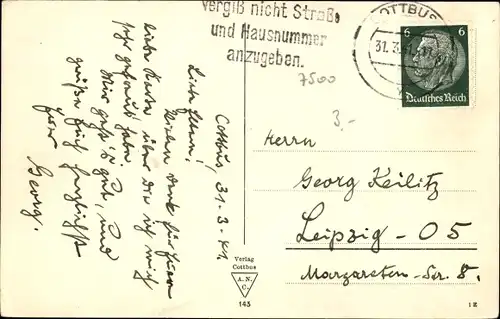 Vergiß nicht Straße
und Hausnummer
anzugeben.
COTTBUS
31.3.41
6 6
Deutsches Reich
7500
3.-
Cottbus, 31.3.41.
Liebe Eltern!
Vielen Dank für Eure
liebe Karte über die ich mich
sehr gefreut habe.
Mir geht's gut, und
grüße Euch herzlichst
Euer
Georg.
Herrn
Georg Keilitz
Leipzig - O5
Margareten-Str. 8.
Verlag
Cottbus
A.N.
C.
143
1 E